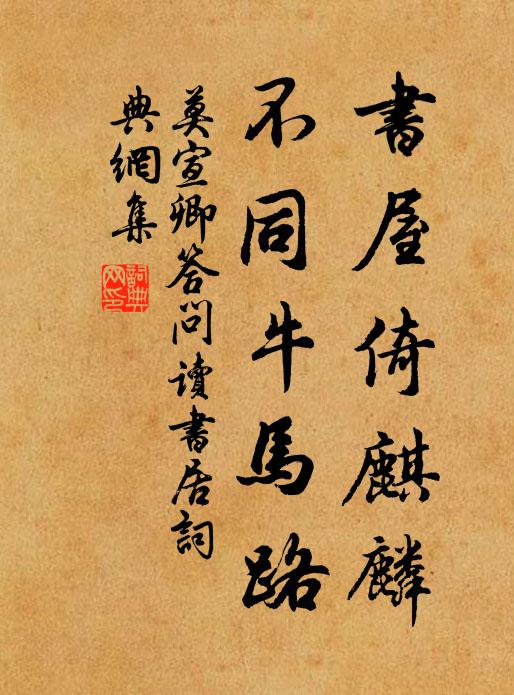 書屋倚麒麟
不同牛馬路
莫宣卿答問讀書居詞
典網集
詞典网印